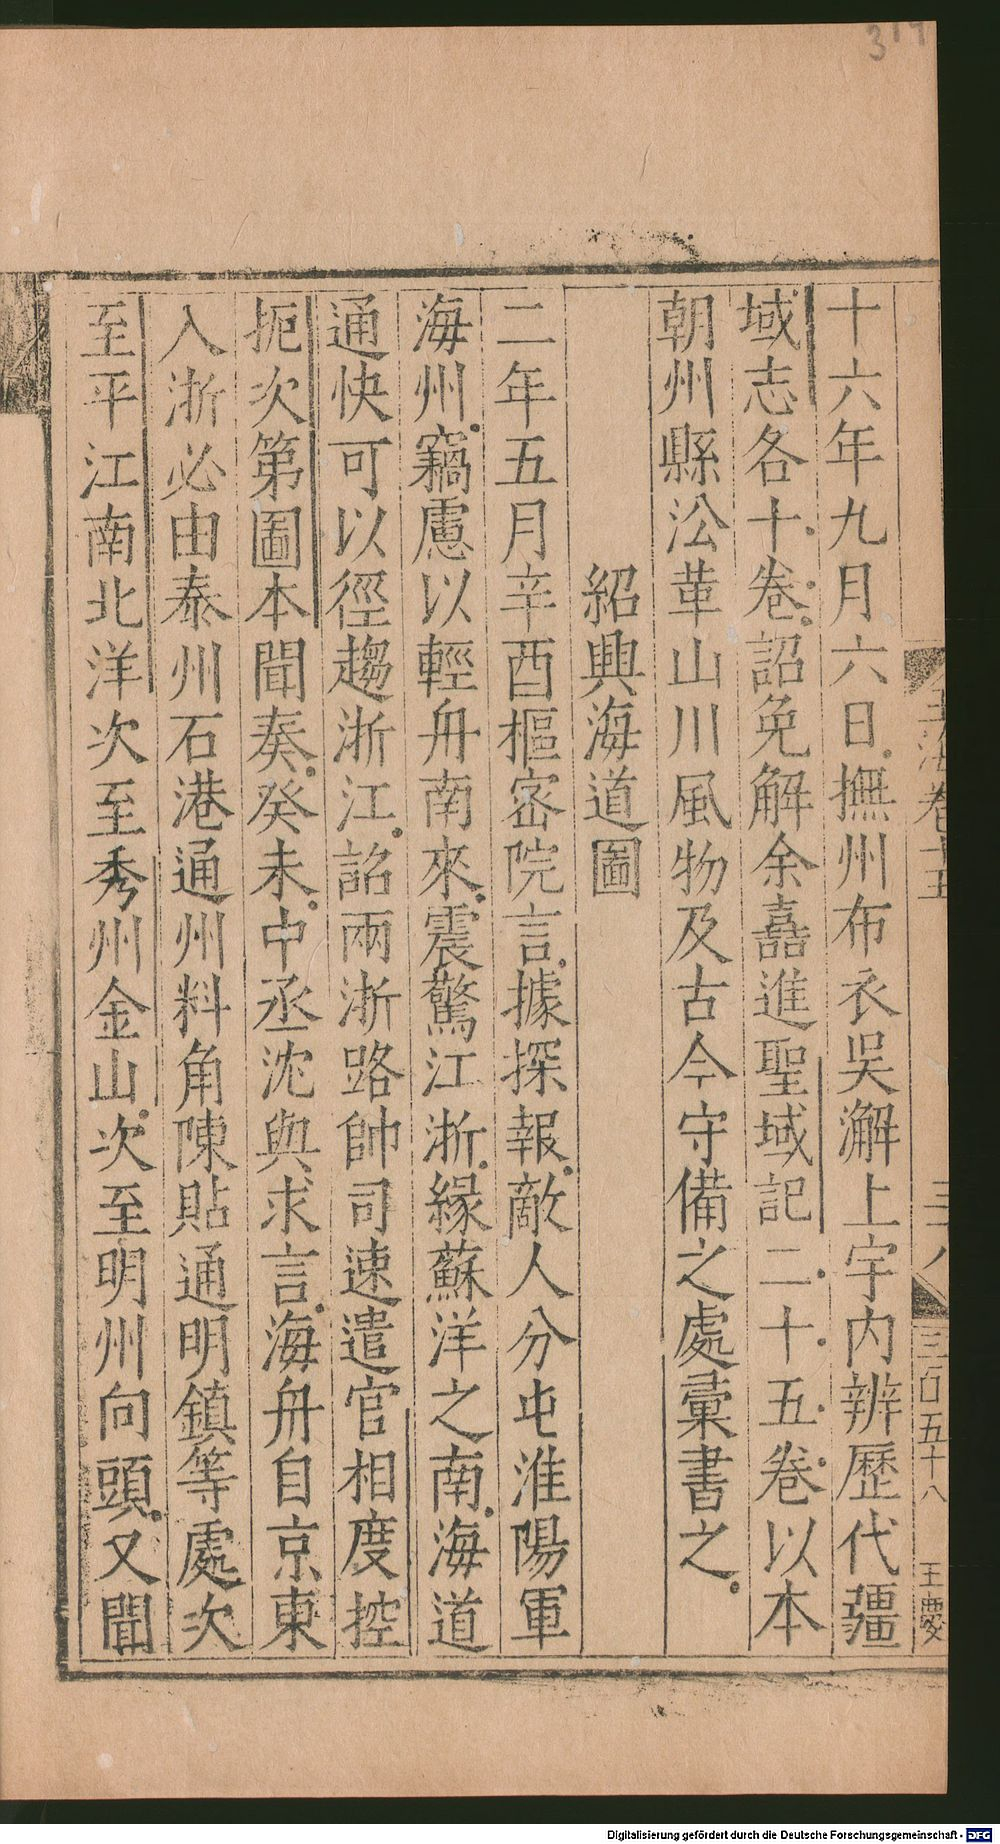 十六年九月六日撫州布衣吳澥上宇内辨歷代疆
域志各十卷詔免解余嚞進聖域記二十五卷以本
朝州縣㳂革山川風物及古今守備之處彙書之
紹興海道圖
二年五月辛酉樞密院言據探報敵人分屯淮陽軍
海州竊慮以輕舟南來震驚江浙緣蘇洋之南海道
通快可以徑趨浙江詔兩浙路帥司速遣官相度控
扼次第圖本聞奏癸未中丞沈與求言海舟自京東
入浙必由泰州石港通州料角陳貼通明鎮等處次
至平江南北洋次至秀州金山次至明州向頭又聞
玉海卷十五
三十八
三百五十八
王慶
Digitalisierung gefördert durch die Deutsche Forschungsgemeinschaft - DFG